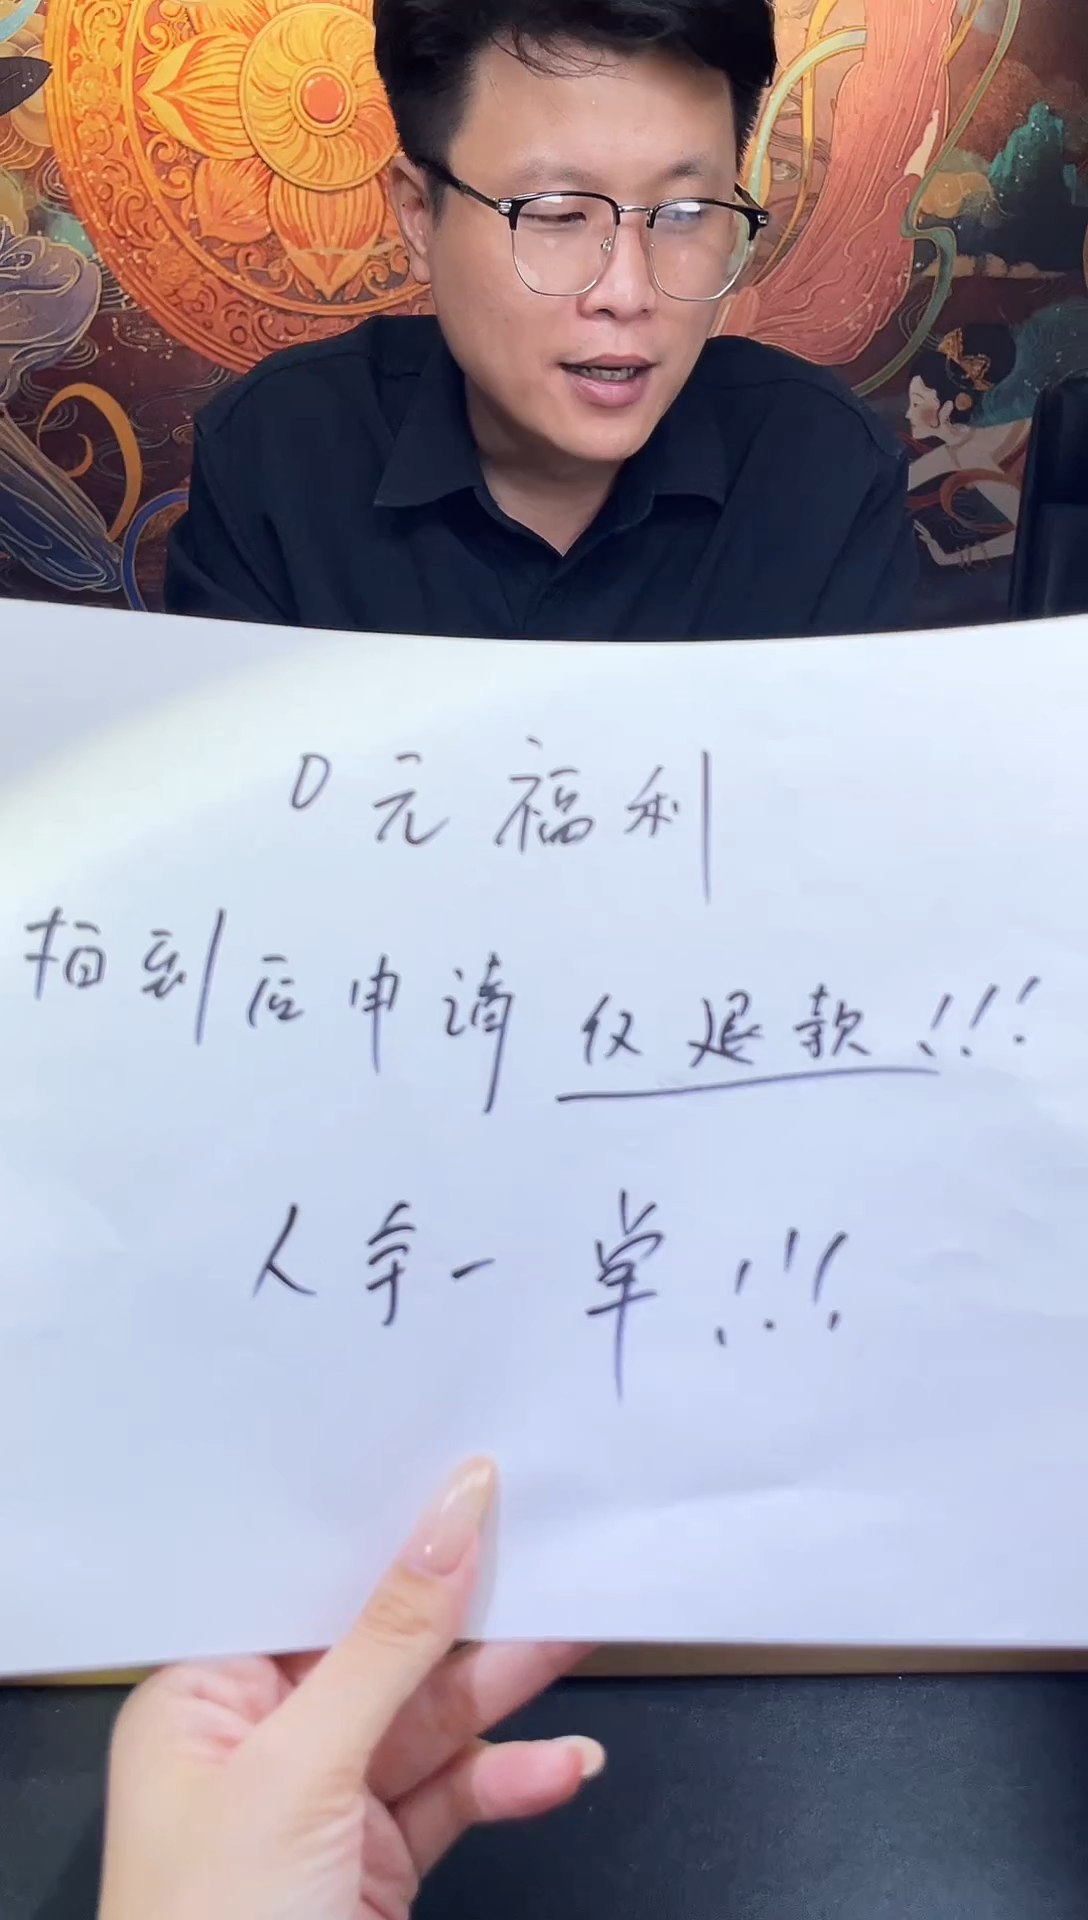 0元福利
拍到后申请仅退款!!!
人手一单!!!